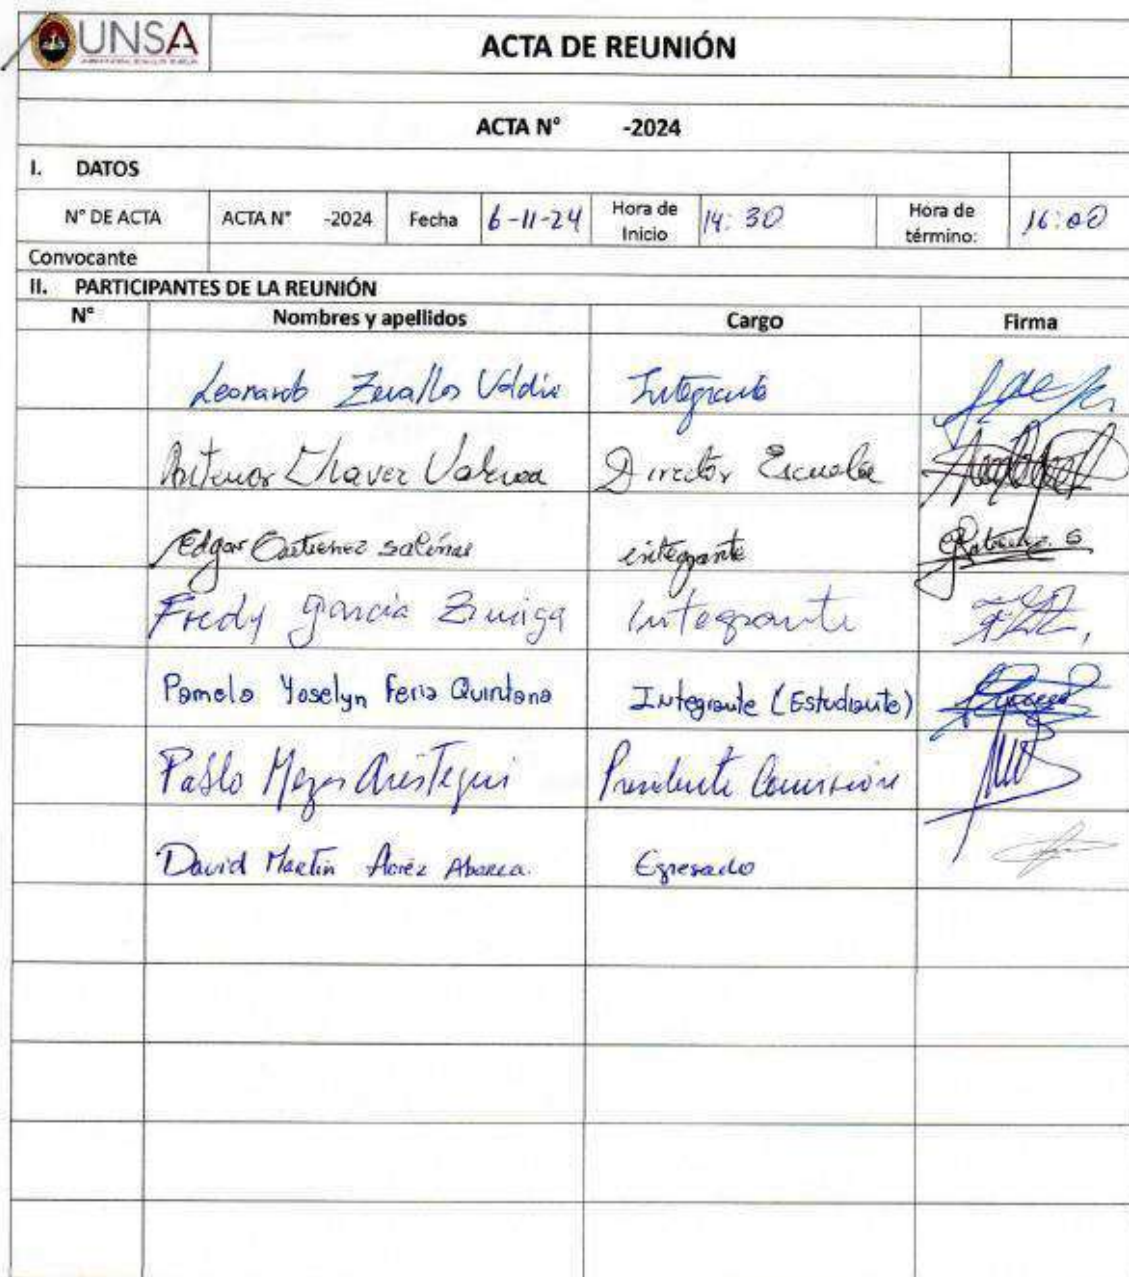 UNSA
ACTA DE REUNIÓN
ACTA N° -2024
I. DATOS
N° DE ACTA ACTA N° -2024 Fecha 6-11-24 Hora de Inicio 14:30 Hora de término: 16:00
Convocante
II. PARTICIPANTES DE LA REUNIÓN
N° Nombres y apellidos Cargo Firma
Leonardo Zevallos Integrante
Antenor Chavez Director Escuela
Edgar Salinas integrante
Fredy García Zuniga Integrante
Pamela Yoselyn Feria Quintana Integrante (Estudiante)
Pablo Meza Aréstegui Presidente Comisión
David Martin Abarca. Egresado